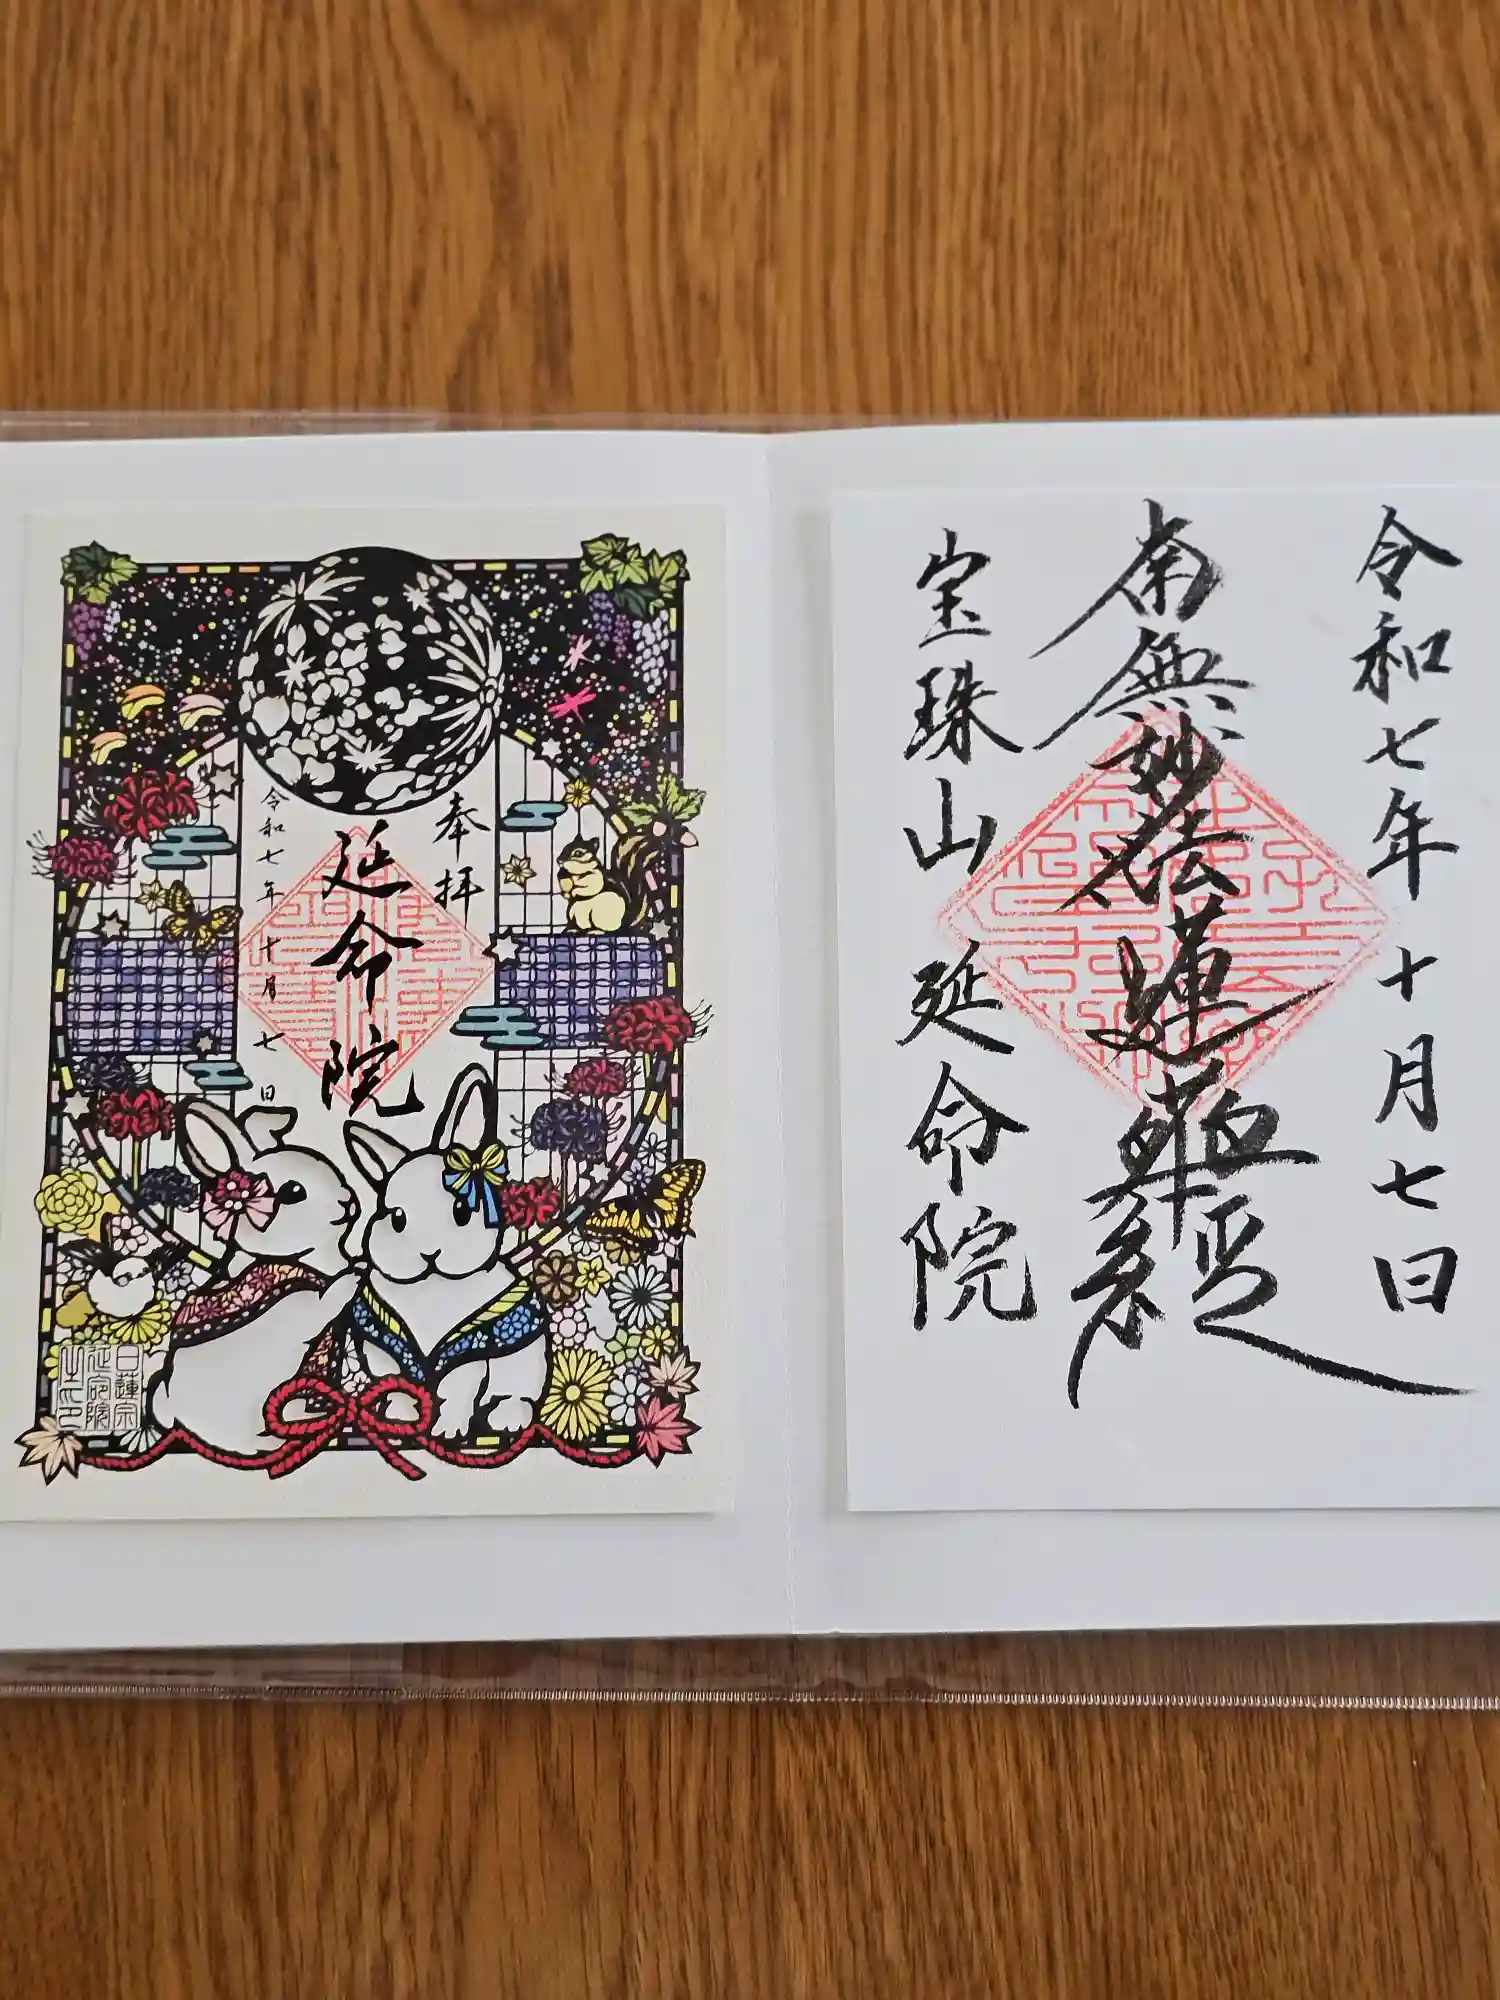 令和七年十月七日
南無妙法蓮華経
宝珠山 延命院
奉拝
延命院
令和七年十月七日
日蓮宗
延命院
之印